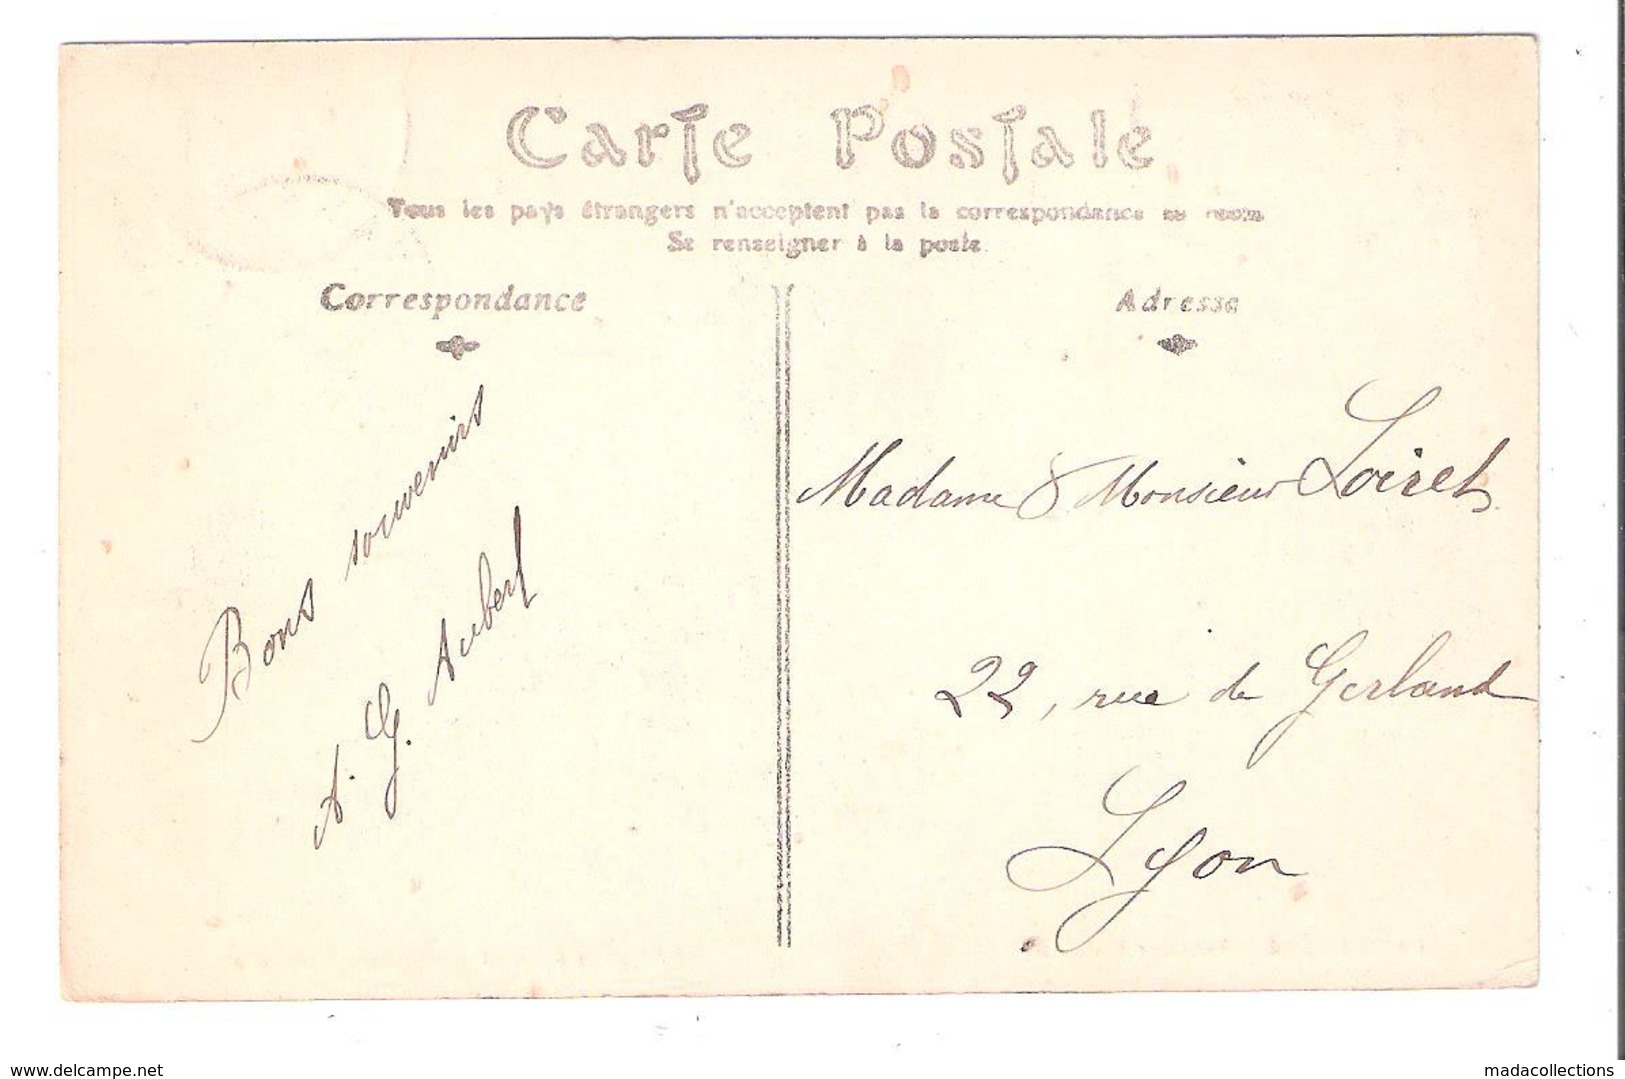 Carte Postale
Tous les pays étrangers n'acceptent pas la correspondance au recto
Se renseigner à la poste.
Correspondance
Adresse
Bons souvenirs
A. G. Aubert
Madame & Monsieur Loiret
22, rue de Gerland
Lyon
www.delcampe.net
madacollections